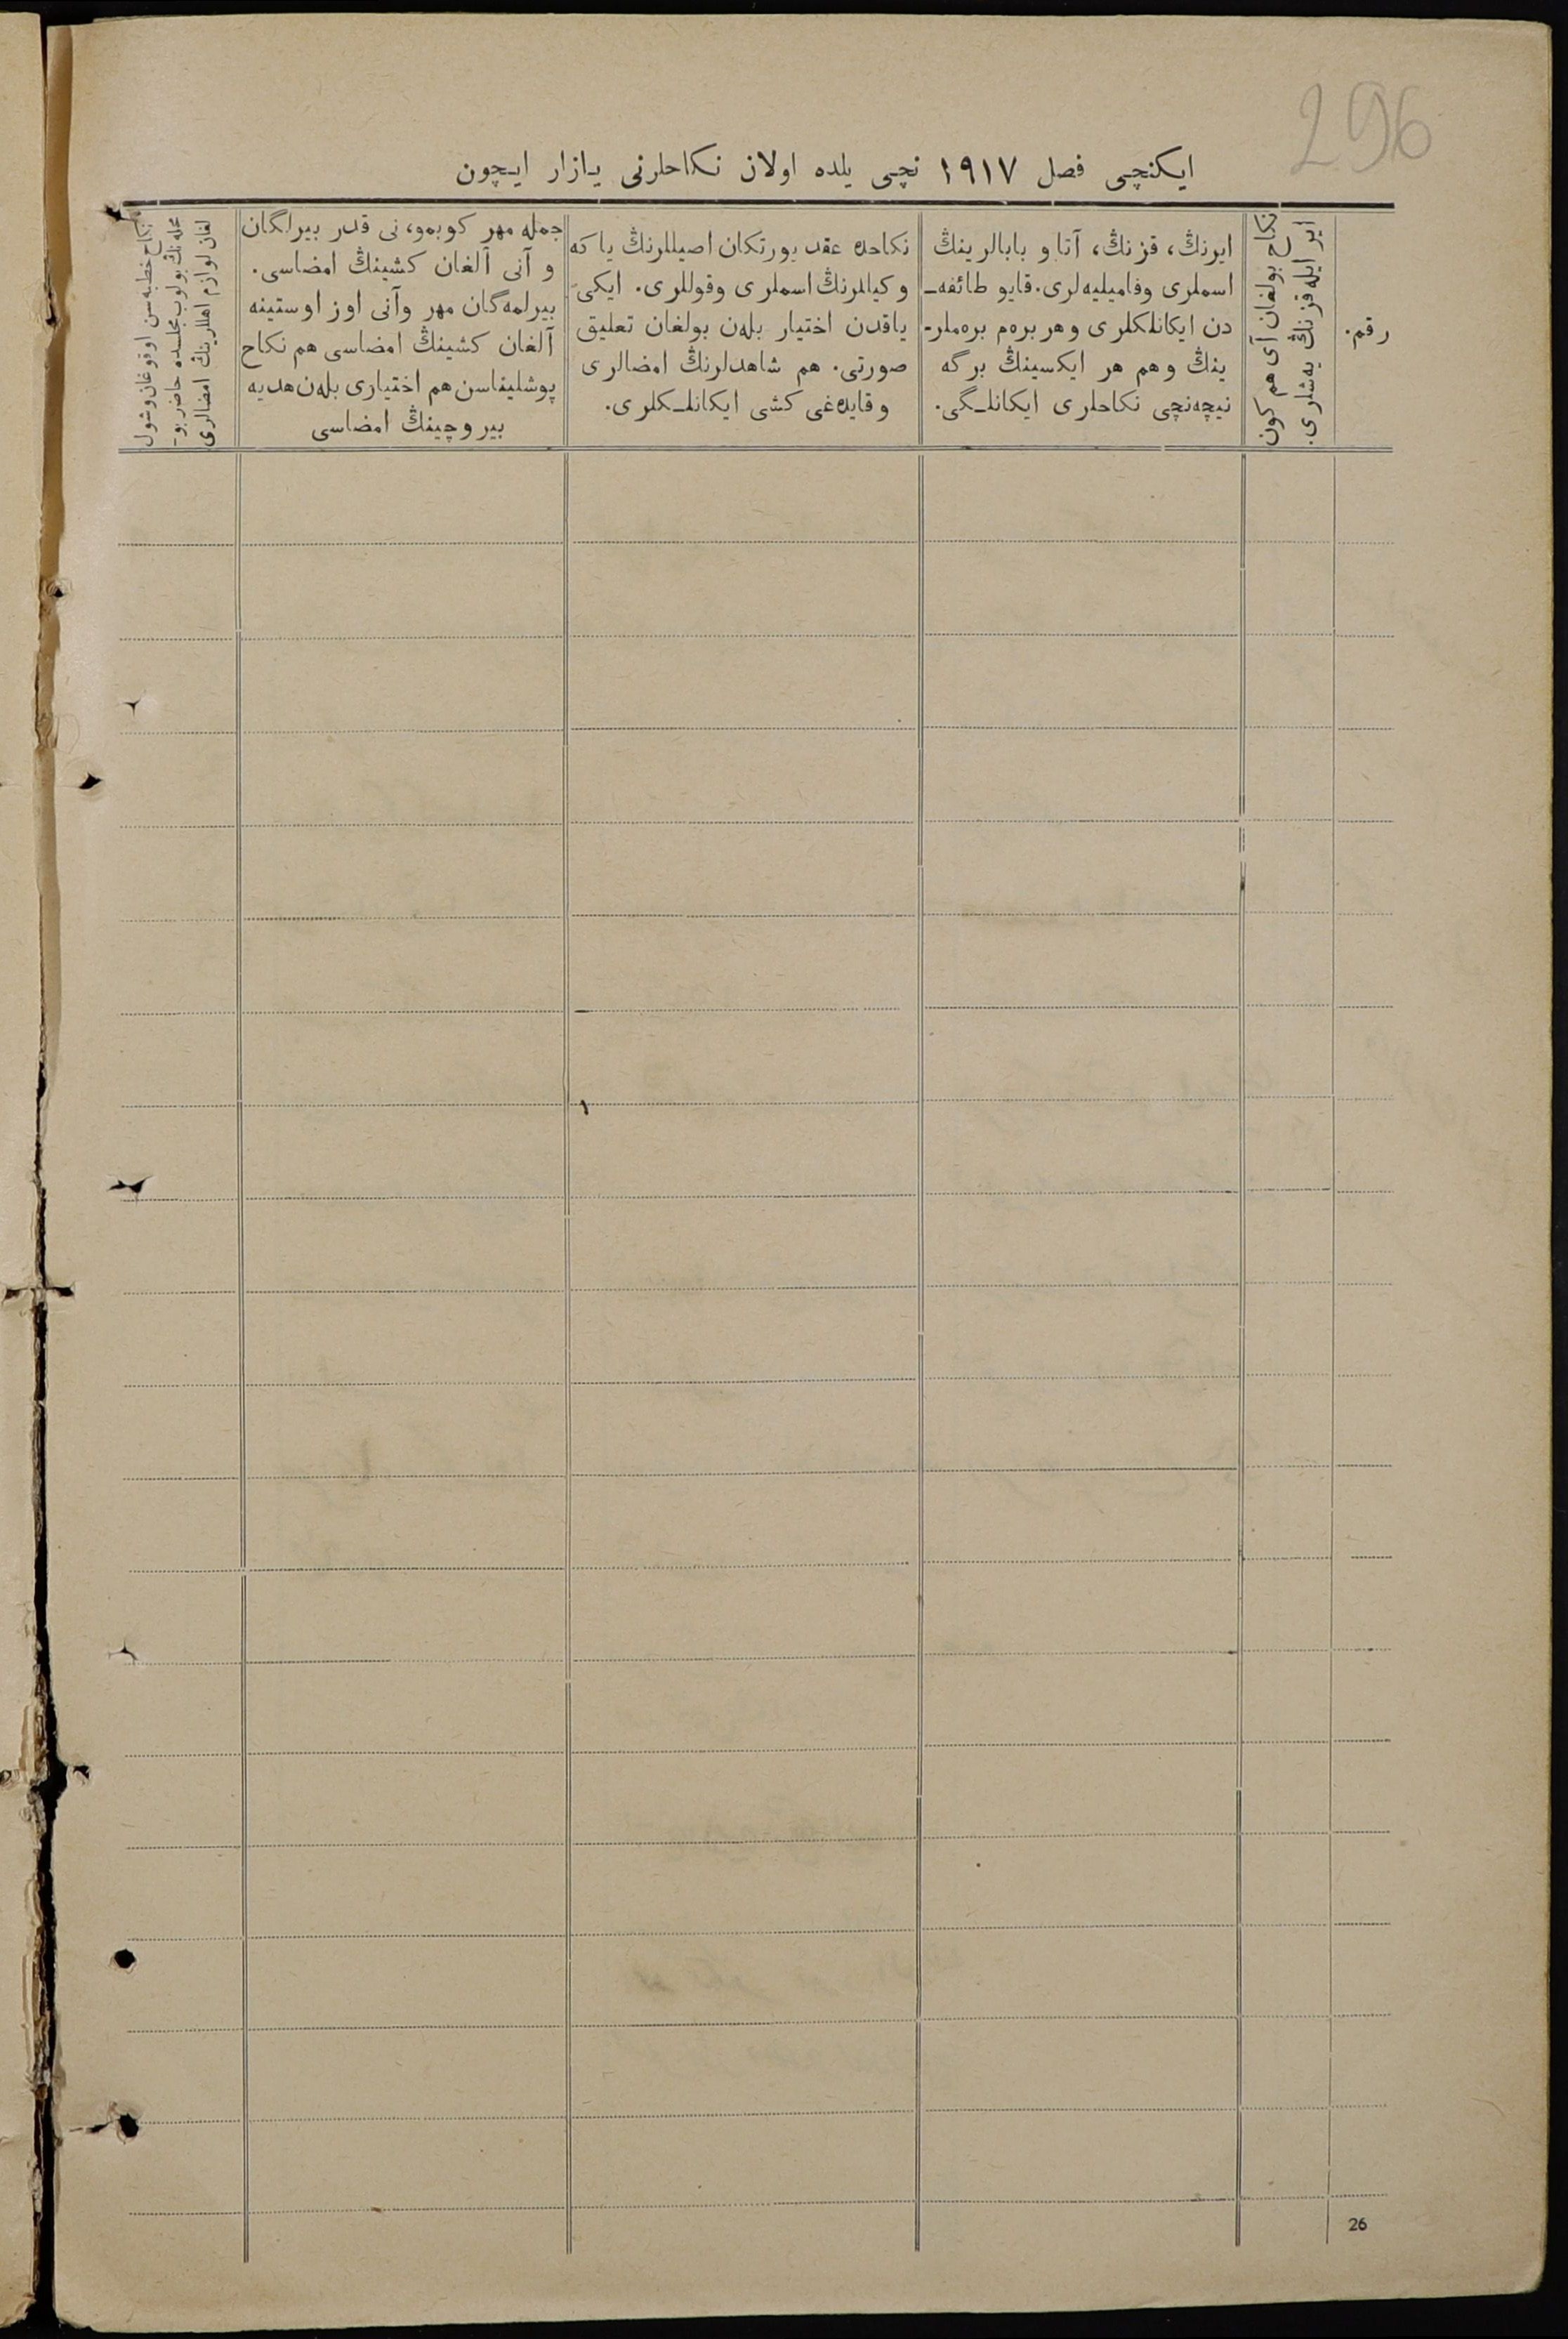 296
ایکنچی فصل ۱۹۱۷ نچی یلده اولان نکاحلرنی یازار ایچون
رقم.
ایر ایله قزنڭ یه‌شلری.
نکاح بولغان آی هم کون
ایرنڭ، قزنڭ، آتا و بابالرینڭ
اسملری وفامیلیه‌لری. قایو طائفه‌ـ
دن ایکانلکلری و هر بره‌م بره‌ملر‌ـ
ینڭ و هم هر ایکسینڭ برگه
نیچه‌نچی نکاحلری ایکانلـگی.
نکاحده عقد یورتکان اصیللرنڭ یا که
وکیللرنڭ اسملری وقوللری. ایکی
یاقدن اختیار بله‌ن بولغان تعلیق
صورتی. هم شاهدلرنڭ امضالری
و قایده‌غی کشی ایکانلـکلری.
جمله مهر کوبمو، نی قدر بیرلگان
و آنی آلغان کشینڭ امضاسی.
بیرلمه‌گان مهر وآنی اوز اوستینه
آلغان کشینڭ امضاسی هم نکاح
پوشلیناسن هم اختیاری بله‌ن هدیه
بیروچینڭ امضاسی
نکاح خطبه‌سن اوقوغان وشول
محله‌نڭ بولوب مجلسده حاضر بو‌ـ
لغان لوازم اهللرینڭ امضالری
26